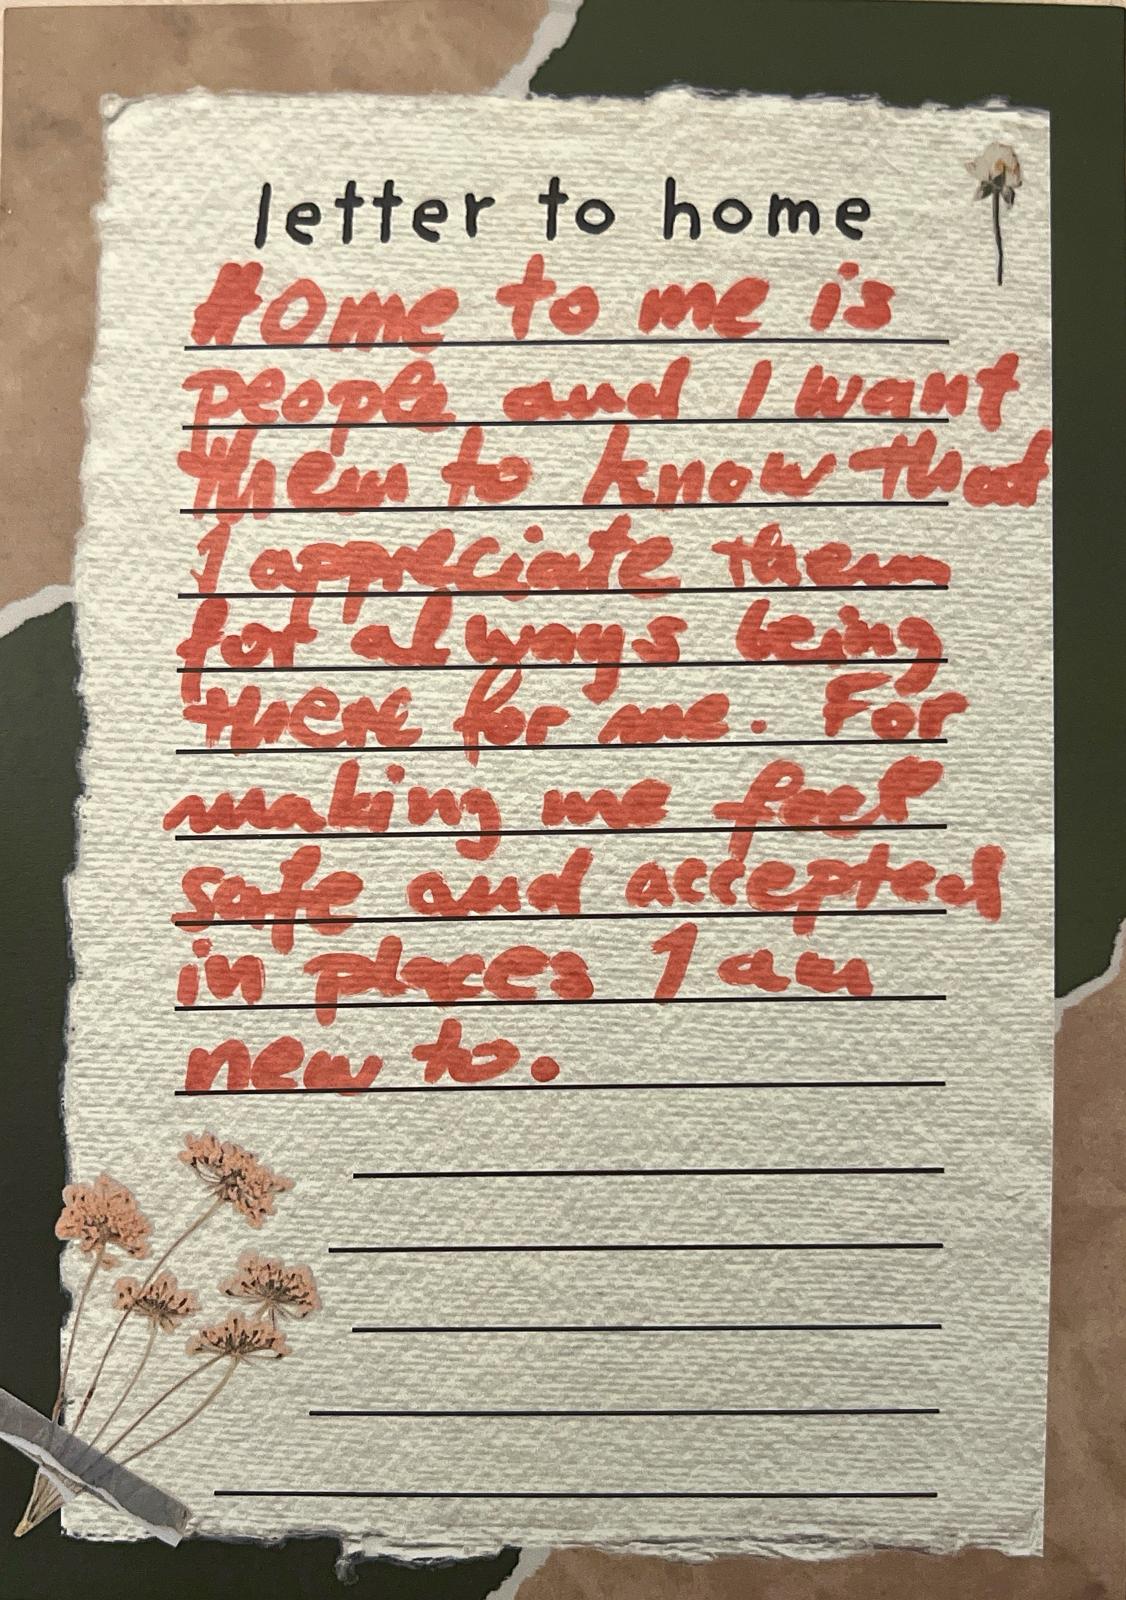 letter to home
Home to me is
people and I want
them to know that
I appreciate them
for always being
there for me. For
making me feel
safe and accepted
in places I am
new to.